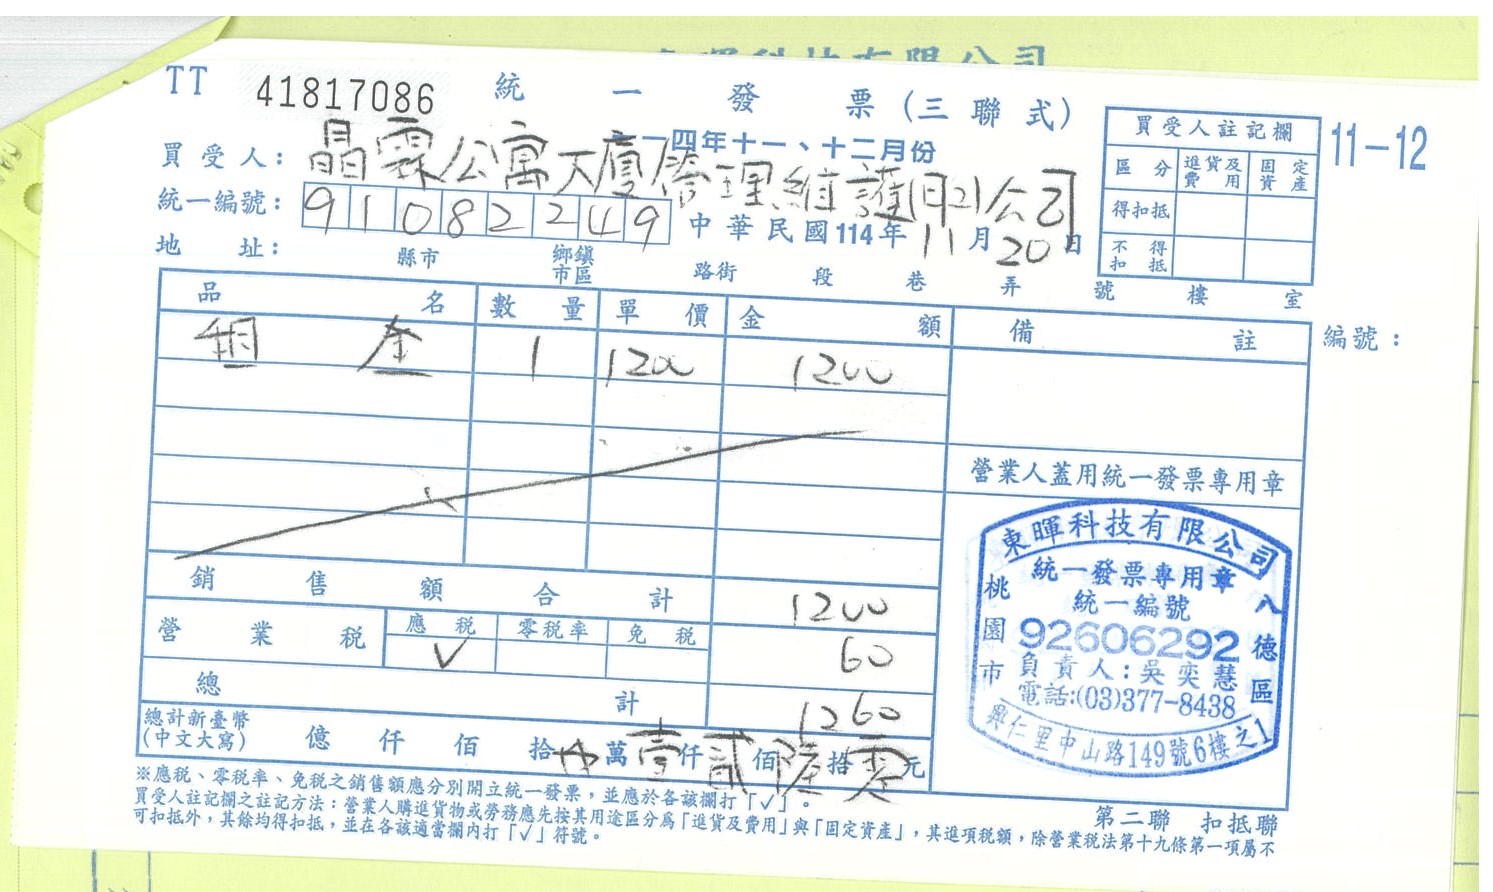 東暉科技有限公司
TT 41817086 統一發票(三聯式)
一一四年十一、十二月份
11-12
買受人: 晶霖公寓大廈管理維護有限公司
統一編號: 91082249
中華民國114年11月20日
地 址: 縣市 鄉鎮市區 路街 段 巷 弄 號 樓 室
買受人註記欄
區 分 進貨及費用 固定資產
得扣抵
不得扣抵
品 名 數 量 單 價 金 額 備 註
編號:
1 1200 1200
營業人蓋用統一發票專用章
銷 售 額 合 計 1200
營 業 稅 應 稅 零稅率 免 稅 60
V
總 計 1260
總計新臺幣
(中文大寫) 億 仟 佰 拾 萬壹仟貳佰陸拾零元
東暉科技有限公司
統一發票專用章
統一編號
92606292
負責人:吳奕慧
電話:(03)377-8438
桃園市
八德區
興仁里中山路149號6樓之1
※應稅、零稅率、免稅之銷售額應分別開立統一發票,並應於各該欄打「✓」。
買受人註記欄之註記方法:營業人購進貨物或勞務應先按其用途區分為「進貨及費用」與「固定資產」,其進項稅額,除營業稅法第十九條第一項屬不
可扣抵外,其餘均得扣抵,並在各該適當欄內打「✓」符號。
第二聯 扣抵聯